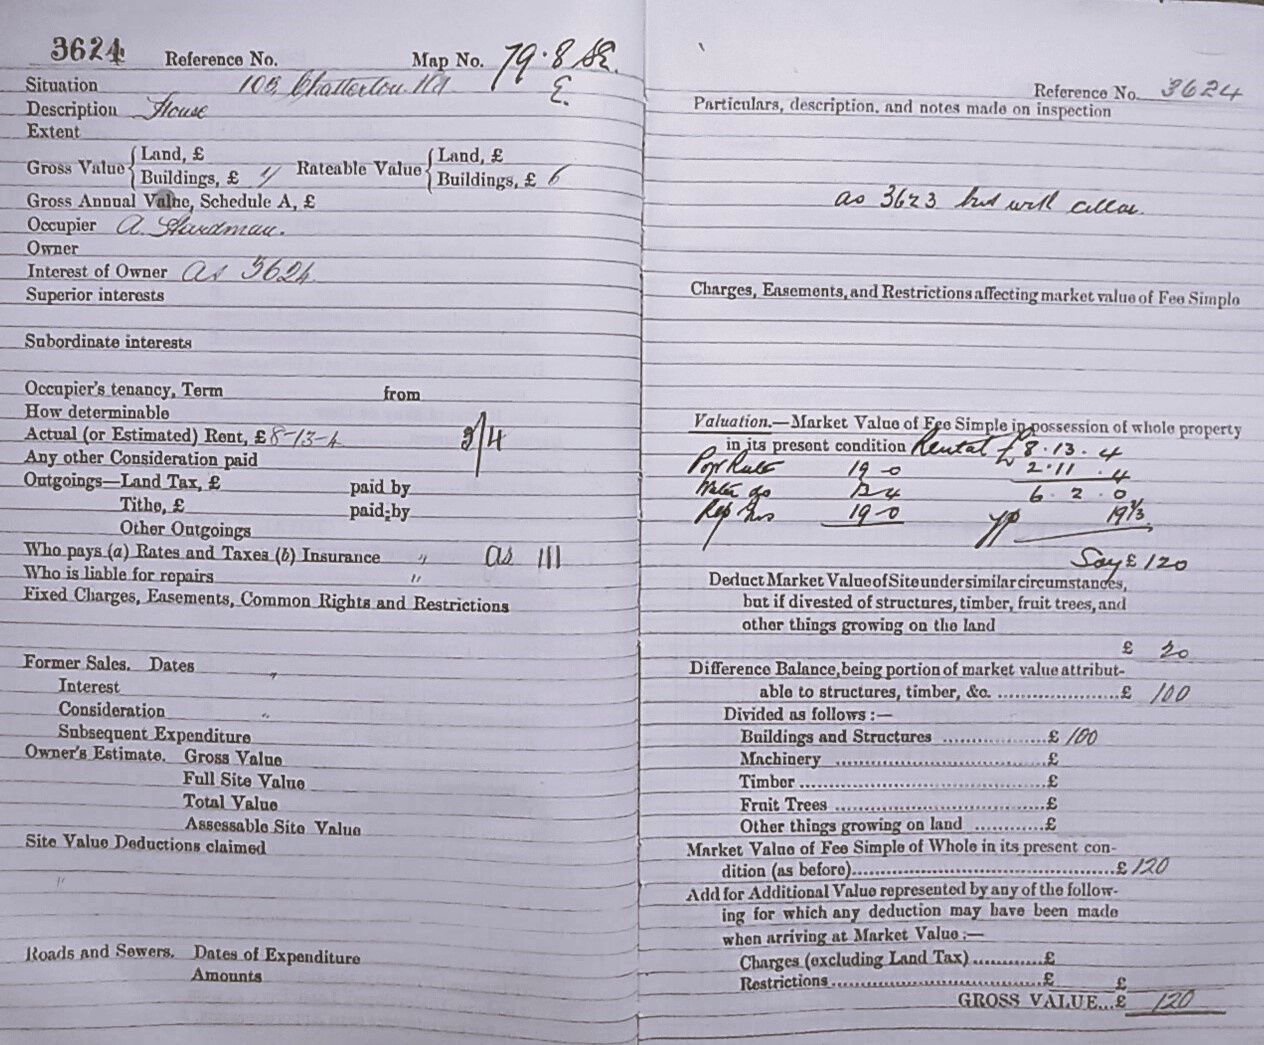 3624 Reference No. Map No. 79.8 SE.
E.
Situation 103 Chatterton Rd
Description House
Extent
Gross Value { Land, £ Rateable Value { Land, £
Buildings, £ Buildings, £ 6
Gross Annual Value, Schedule A, £
Occupier A. Hardman.
Owner
Interest of Owner as 3624
Superior interests
Subordinate interests
Occupier's tenancy, Term from
How determinable
Actual (or Estimated) Rent, £ 8-13-4 3/4
Any other Consideration paid
Outgoings—Land Tax, £ paid by
Tithe, £ paid by
Other Outgoings
Who pays (a) Rates and Taxes (b) Insurance " as 111
Who is liable for repairs "
Fixed Charges, Easements, Common Rights and Restrictions
Former Sales. Dates "
Interest
Consideration "
Subsequent Expenditure
Owner's Estimate. Gross Value
Full Site Value
Total Value
Assessable Site Value
Site Value Deductions claimed
"
Roads and Sewers. Dates of Expenditure
Amounts
Reference No. 3624
Particulars, description, and notes made on inspection
as 3623 but with cellar.
Charges, Easements, and Restrictions affecting market value of Fee Simple
Valuation.—Market Value of Fee Simple in possession of whole property
in its present condition Rental £ 8.13.4
19-0 2.11.4
Water do 13-4 6.2.0
Rep Ins 19-0 YP 19⅓
Say £ 120
Deduct Market Value of Site under similar circumstances,
but if divested of structures, timber, fruit trees, and
other things growing on the land
£ 20
Difference Balance, being portion of market value attribut-
able to structures, timber, &c. ..................£ 100
Divided as follows :—
Buildings and Structures ...............£ 100
Machinery ..............................£
Timber ...................................£
Fruit Trees ..............................£
Other things growing on land ............£
Market Value of Fee Simple of Whole in its present con-
dition (as before)......................................£ 120
Add for Additional Value represented by any of the follow-
ing for which any deduction may have been made
when arriving at Market Value :—
Charges (excluding Land Tax) ............£
Restrictions ..............................£ £
GROSS VALUE...£ 120